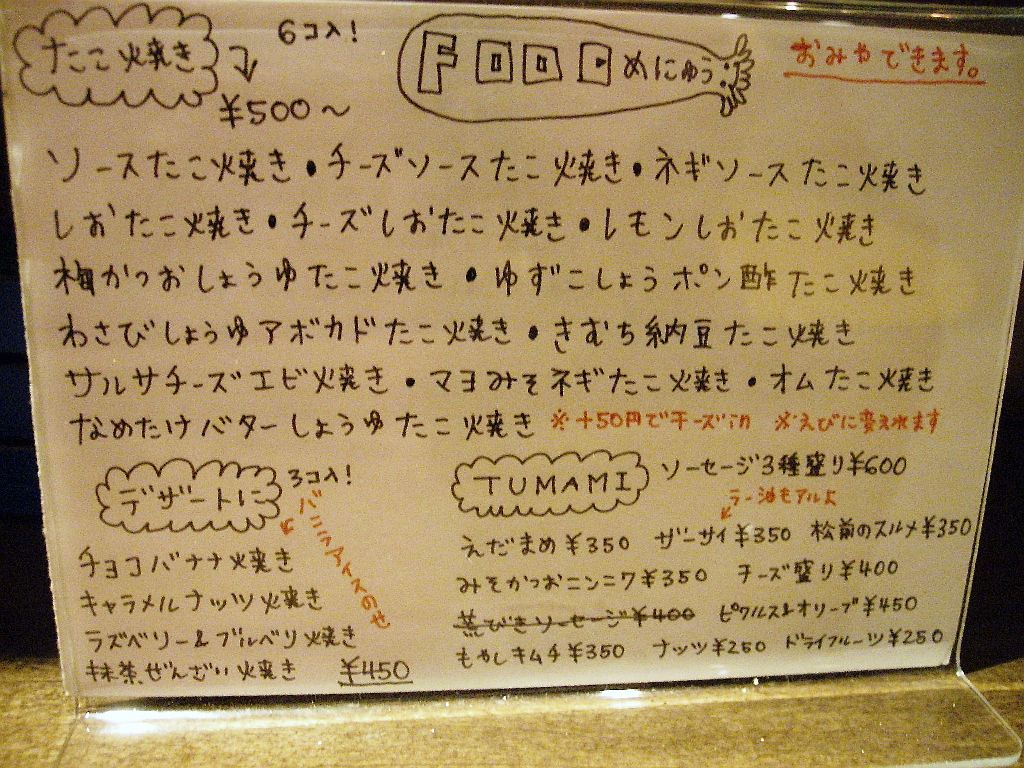 たこ焼き 6コ入! FOODめにゅう おみやできます。
¥500～
ソースたこ焼き・チーズソースたこ焼き・ネギソースたこ焼き
しおたこ焼き・チーズしおたこ焼き・レモンしおたこ焼き
梅かつおしょうゆたこ焼き・ゆずこしょうポン酢たこ焼き
わさびしょうゆアボカドたこ焼き・きむち納豆たこ焼き
サルサチーズエビ焼き・マヨみそネギたこ焼き・オムたこ焼き
なめたけバターしょうゆたこ焼き ※+50円でチーズin ※えびに変え れます
デザートに 3コ入!
バニラアイスのせ
チョコバナナ焼き
キャラメルナッツ焼き
ラズベリー&ブルベリ焼き
抹茶ぜんざい焼き ¥450
TUMAMI ソーセージ3種盛り¥600
ラー油もアルよ
えだまめ¥350 ザーサイ¥350 松前のスルメ¥350
みそかつおニンニク¥350 チーズ盛り¥400
荒びきソーセージ¥400 ピクルス&オリーブ¥450
もやしキムチ¥350 ナッツ¥250 ドライフルーツ¥250